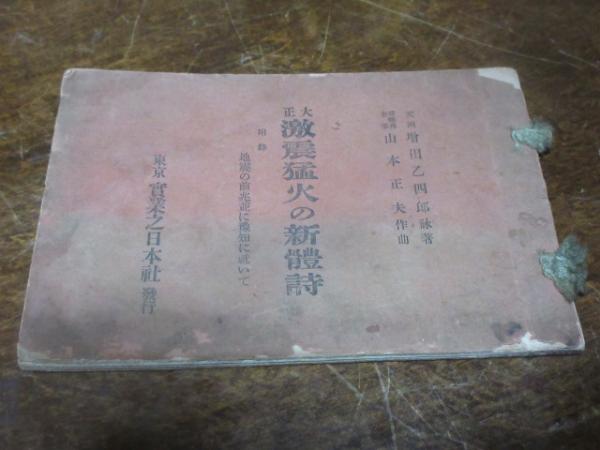 増田乙四郎詠著
山本正夫作曲
大正
激震猛火の新體詩
附錄
地震の前兆並に豫知に就いて
東京 實業之日本社 發行